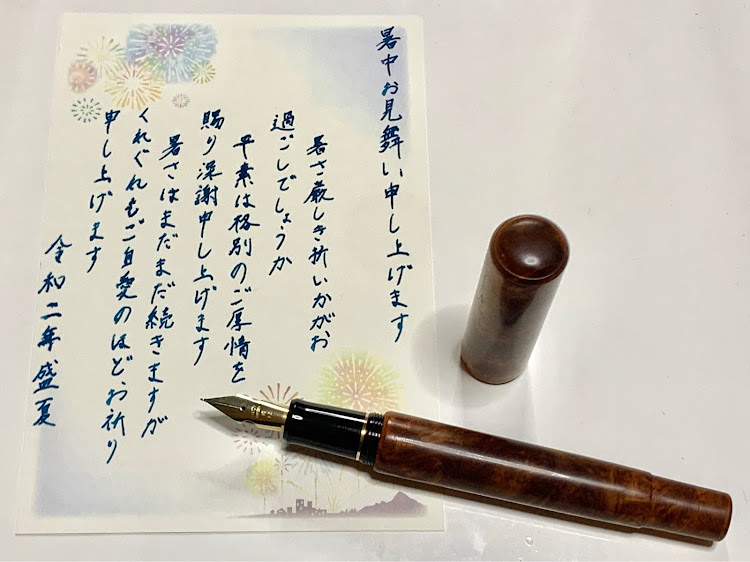 暑中お見舞い申し上げます
暑さ厳しき折いかがお
過ごしでしょうか
平素は格別のご厚情を
賜り深謝申し上げます
暑さはまだまだ続きますが
くれぐれもご自愛のほどお祈り
申し上げます
令和二年盛夏